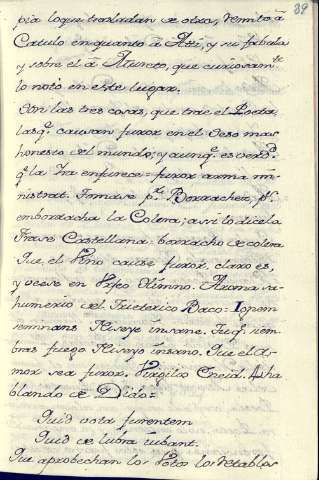 89
pia lo que trasladan de otro, remito à
Catulo en quanto à Atti, y su fabula
y sobre el à Mureto, que curiosam.te
lo notó en este lugar.
Son las tres cosas, que trae el Poeta,
las q.e causan furor en el Seso mas
honesto del mundo; y aunq.e es verd.d
q.e la Ira enfurece = furor arma mi=
nistrat. Tomase p.r Borrachez, p.r
emborracha la Colera; assi lo dice la
Frase Castellana: borracho de colera
Que el Vino cause furor, claro es,
y vese en Orfeo Himno. Aroma sa=
humerio del Trieterico Baco: Ignem
seminans Niseye insane. Tu q.e siem=
bras fuego Niseyo insano. Que el A=
mor sea furor. Virgilio Eneid. 4 ha
blando de Dido =
Quid vota furentem
Quid de lubra iubant.
Que aprobechan los Votos los retablos